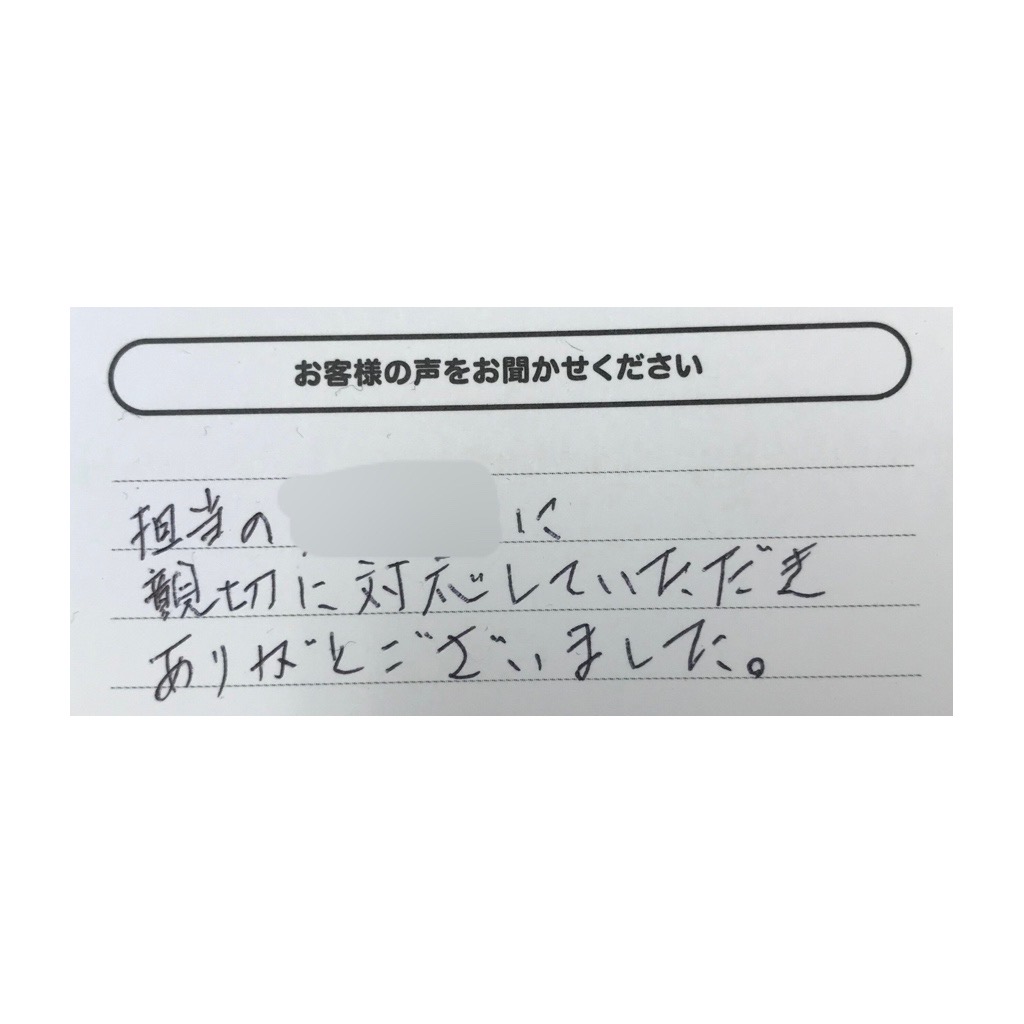 お客様の声をお聞かせください
担当の に
親切に対応していただき
ありがとございました。